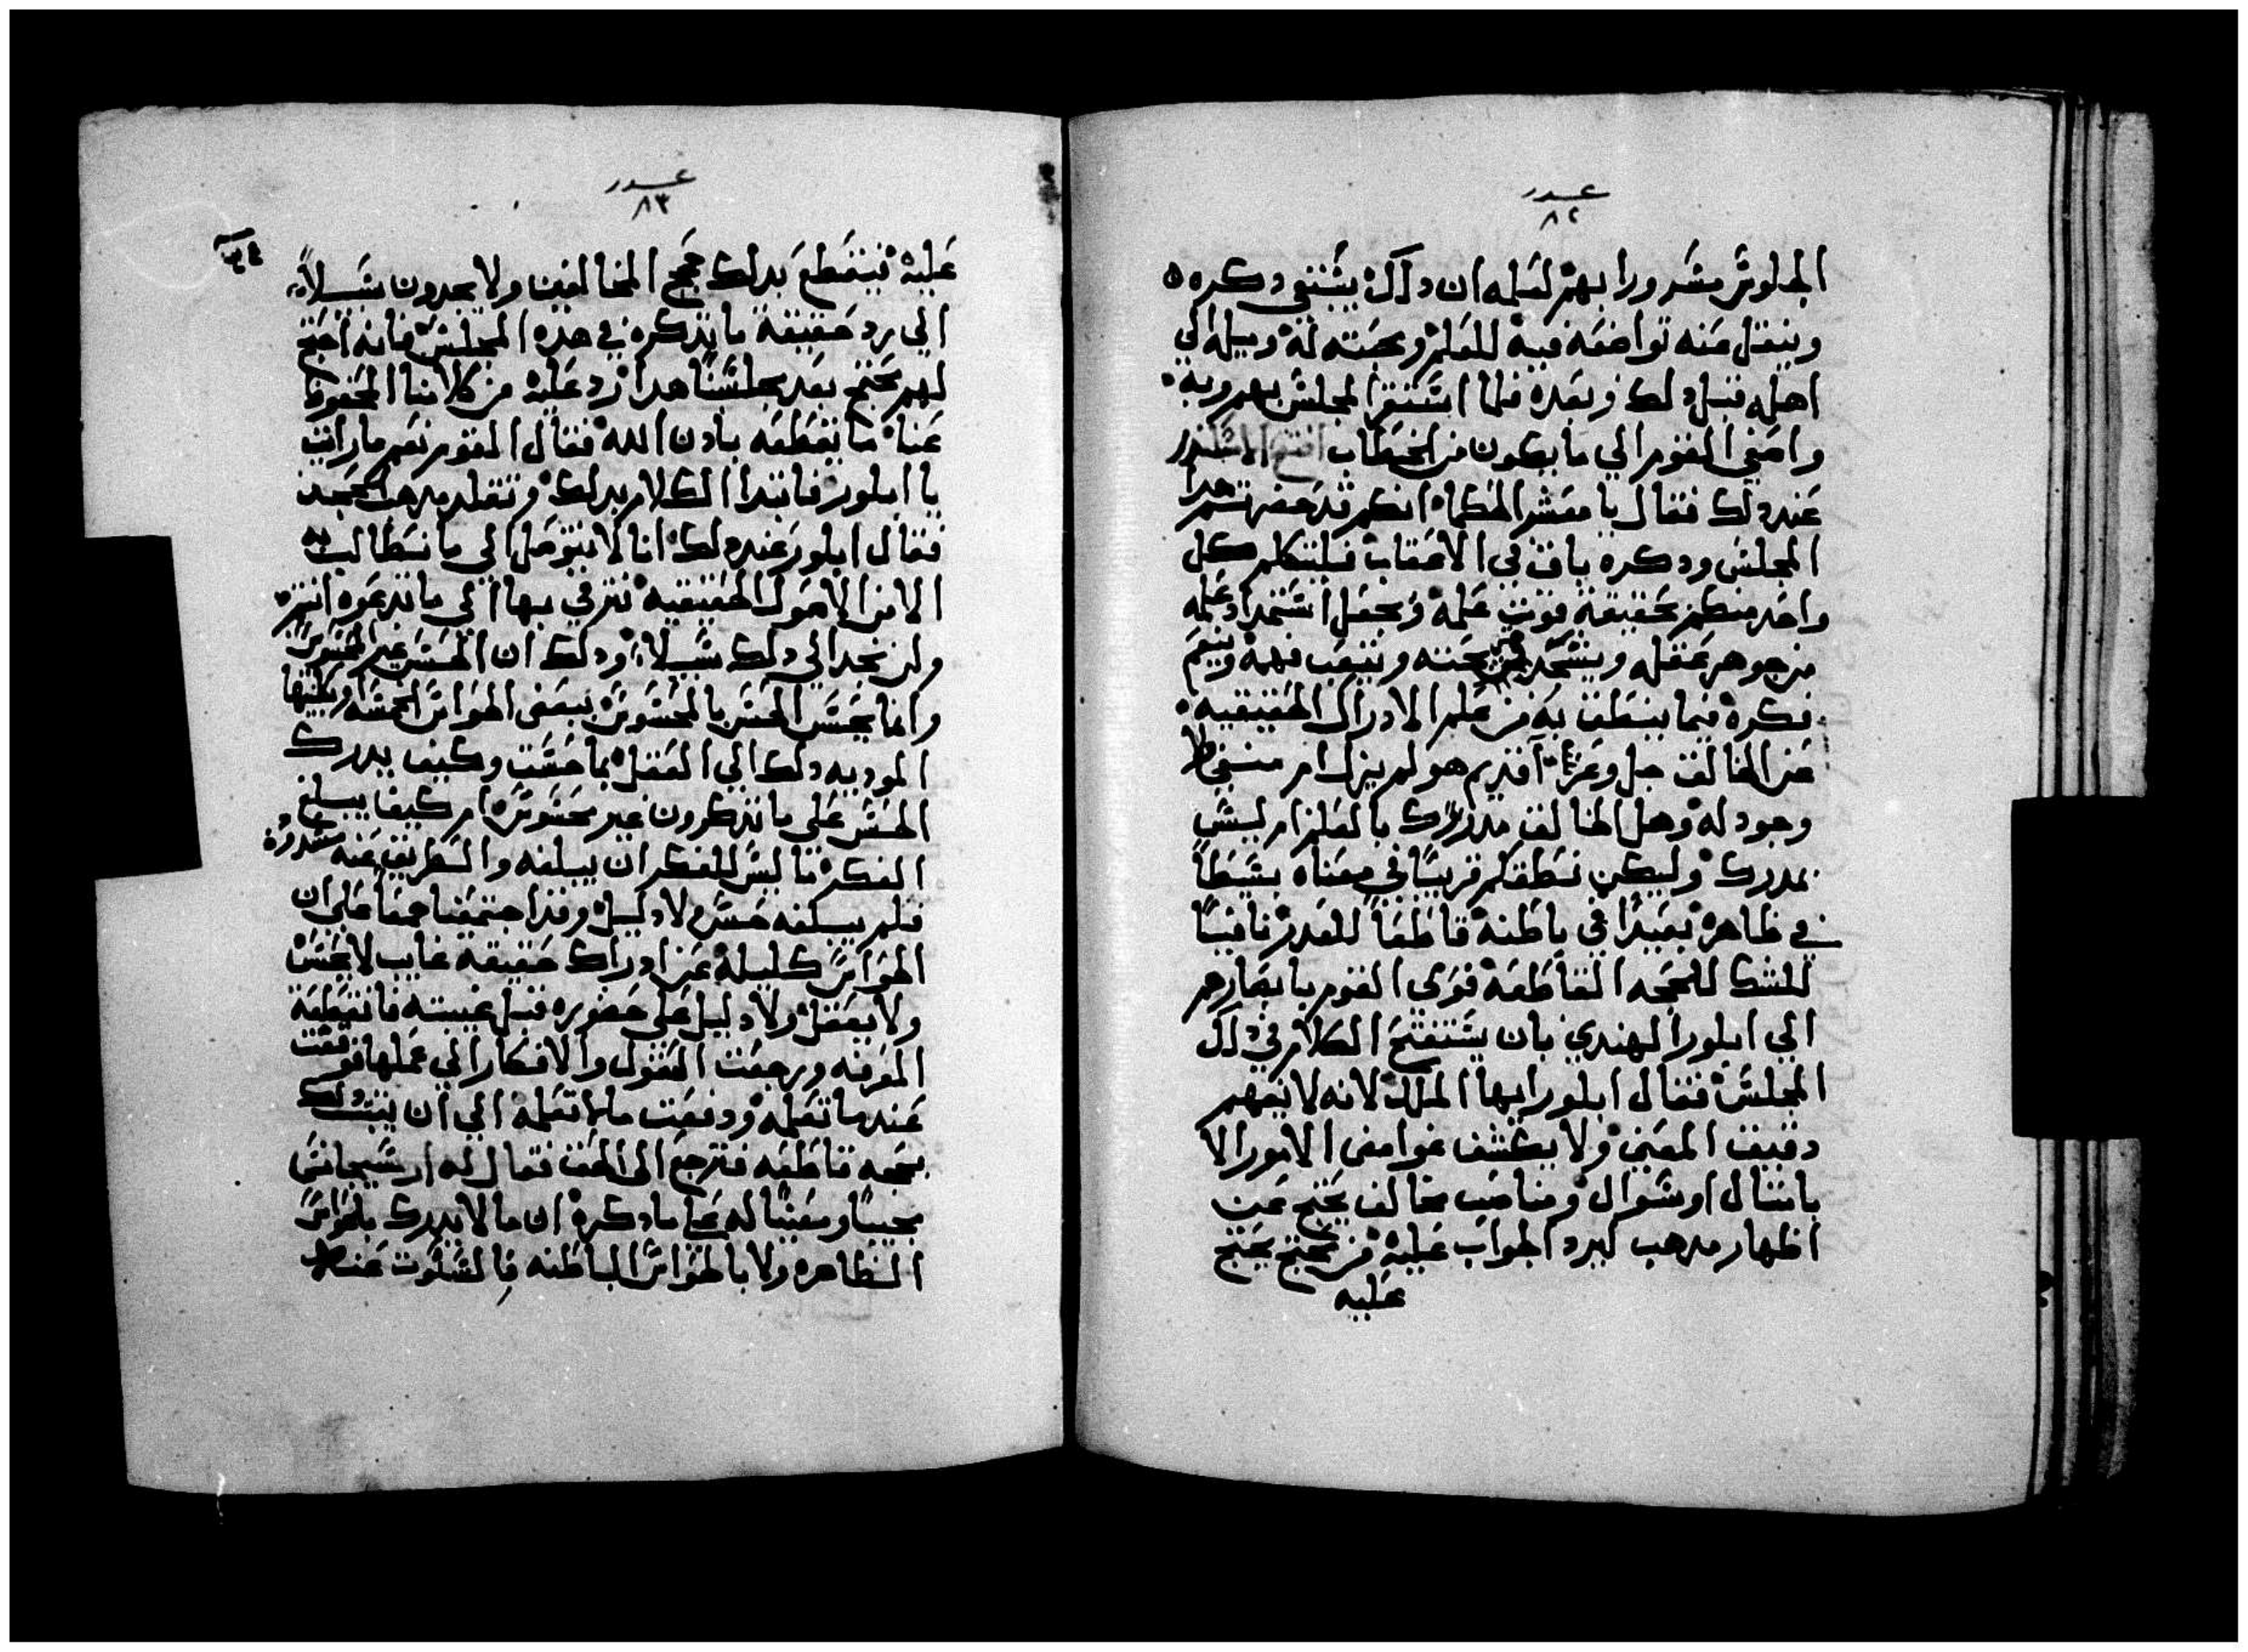 عدد
٨٢
الجلوس مسرورا بهم لعلمه ان دلك يستبقي دكره
وينقل عنه تواضعه فيه للعلم ومحبته له وميله الي
اهله قبل دلك وبعده فلما استقر المجلس بهم وبه
واصغي القوم الي ما يكون من الخطاب افتتح الاسكندر
عند دلك فقال يا معشر الحكماء انكم قد حضرتم هدا
المجلس ودكره باق في الاعقاب فليتكلم كل
واحد منكم بحقيقة قوت علمه ويجعل استمداد علمه
من جوهر عقله ويشحد محنته ويتعب فهمه وينعم
فكره فيما ينطق به من علم الادراك الحقيقيه
عن الخالق جل وعز اقديم هو لم يزل ام منسقط
وجود له وهل الخالق مدرك بالعلم ام ليس
بمدرك وليكن نطقكم قريبًا في معناه بسيطًا
في ظاهره بعيدًا في باطنه قاطعًا للعدر نافيًا
للشك للحجه القاطعه فوري القوم بابصارهم
الي ابلور الهندي بان يستفتح الكلام في دلك
المجلس فقال ابلور ايها الملك لانه لا يفهم
دقيق المعني ولا يكشف غوامض الامور الا
بامتال او سوال ومناصب مخالف يحتج عن
اظهار مدهب ليرد الجواب عليه من محتج يحتج
عليه
عدد
٨٣
عليه فينقطع بدلك حجج المخالفين ولا يجدون سبيلاً
الي رد حقيقة ما تدكره في هده المجلس فانه احتج
لهم محتج بعد مجلسنا هدا رد عليه من كلامنا المحفوظ
عنا ما يقطعه بادن الله فقال القوم نعم ما رايت
يا ابلور فابتدا الكلام بدلك وتقلد مدهب
فقال ابلور عند دلك انا لا نتوصل الي ما نسطالب به
الا من الاصول الحقيقيه نترقي بها الي ما تدعوه انتم
ولن نجد الي دلك سبيلا ودلك ان الحس غير المحسوس
وانما يحس الحس بالمحسوس ببعض الحواس الخمسه
الموديه دلك الي العقل بما حست وكيف يدرك
الحس علي ما تدكرون غير محسوس ام كيف يبلغ
الفكر ما ليس للفكر ان يبلغه والطريق عنه مسدوده
فلم يسلكه حس ولا دليل وقد اجتمعنا جمعا علي ان
الحواس كليله عن ادراك حقيقه غايب لا يحس
ولا يعقل ولا دليل علي حضوره قبل غيبته فانقطعة
المعرفه ورجعت العقول والافكار الي عملها فوقفت
عند ما تعلمه ودفعت ما لا تعلمه الي ان يتبت دلك
بحجه قاطعه فترجع الي الحق فقال له ارسيجانس
مجيبًا ومعينًا له علي ما دكره ان ما لا يدرك بالحواس
الظاهره ولا بالحواس الباطنه فالسكوت عنه